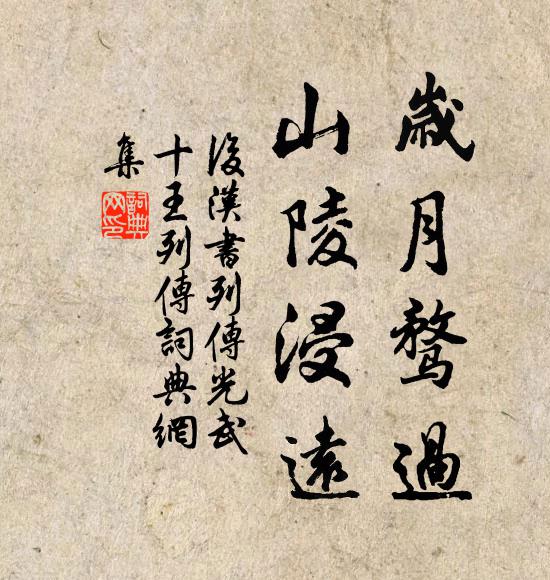 歲月騖過
山陵浸遠
後漢書列傳光武
十王列傳詞典網
集
詞典
网印